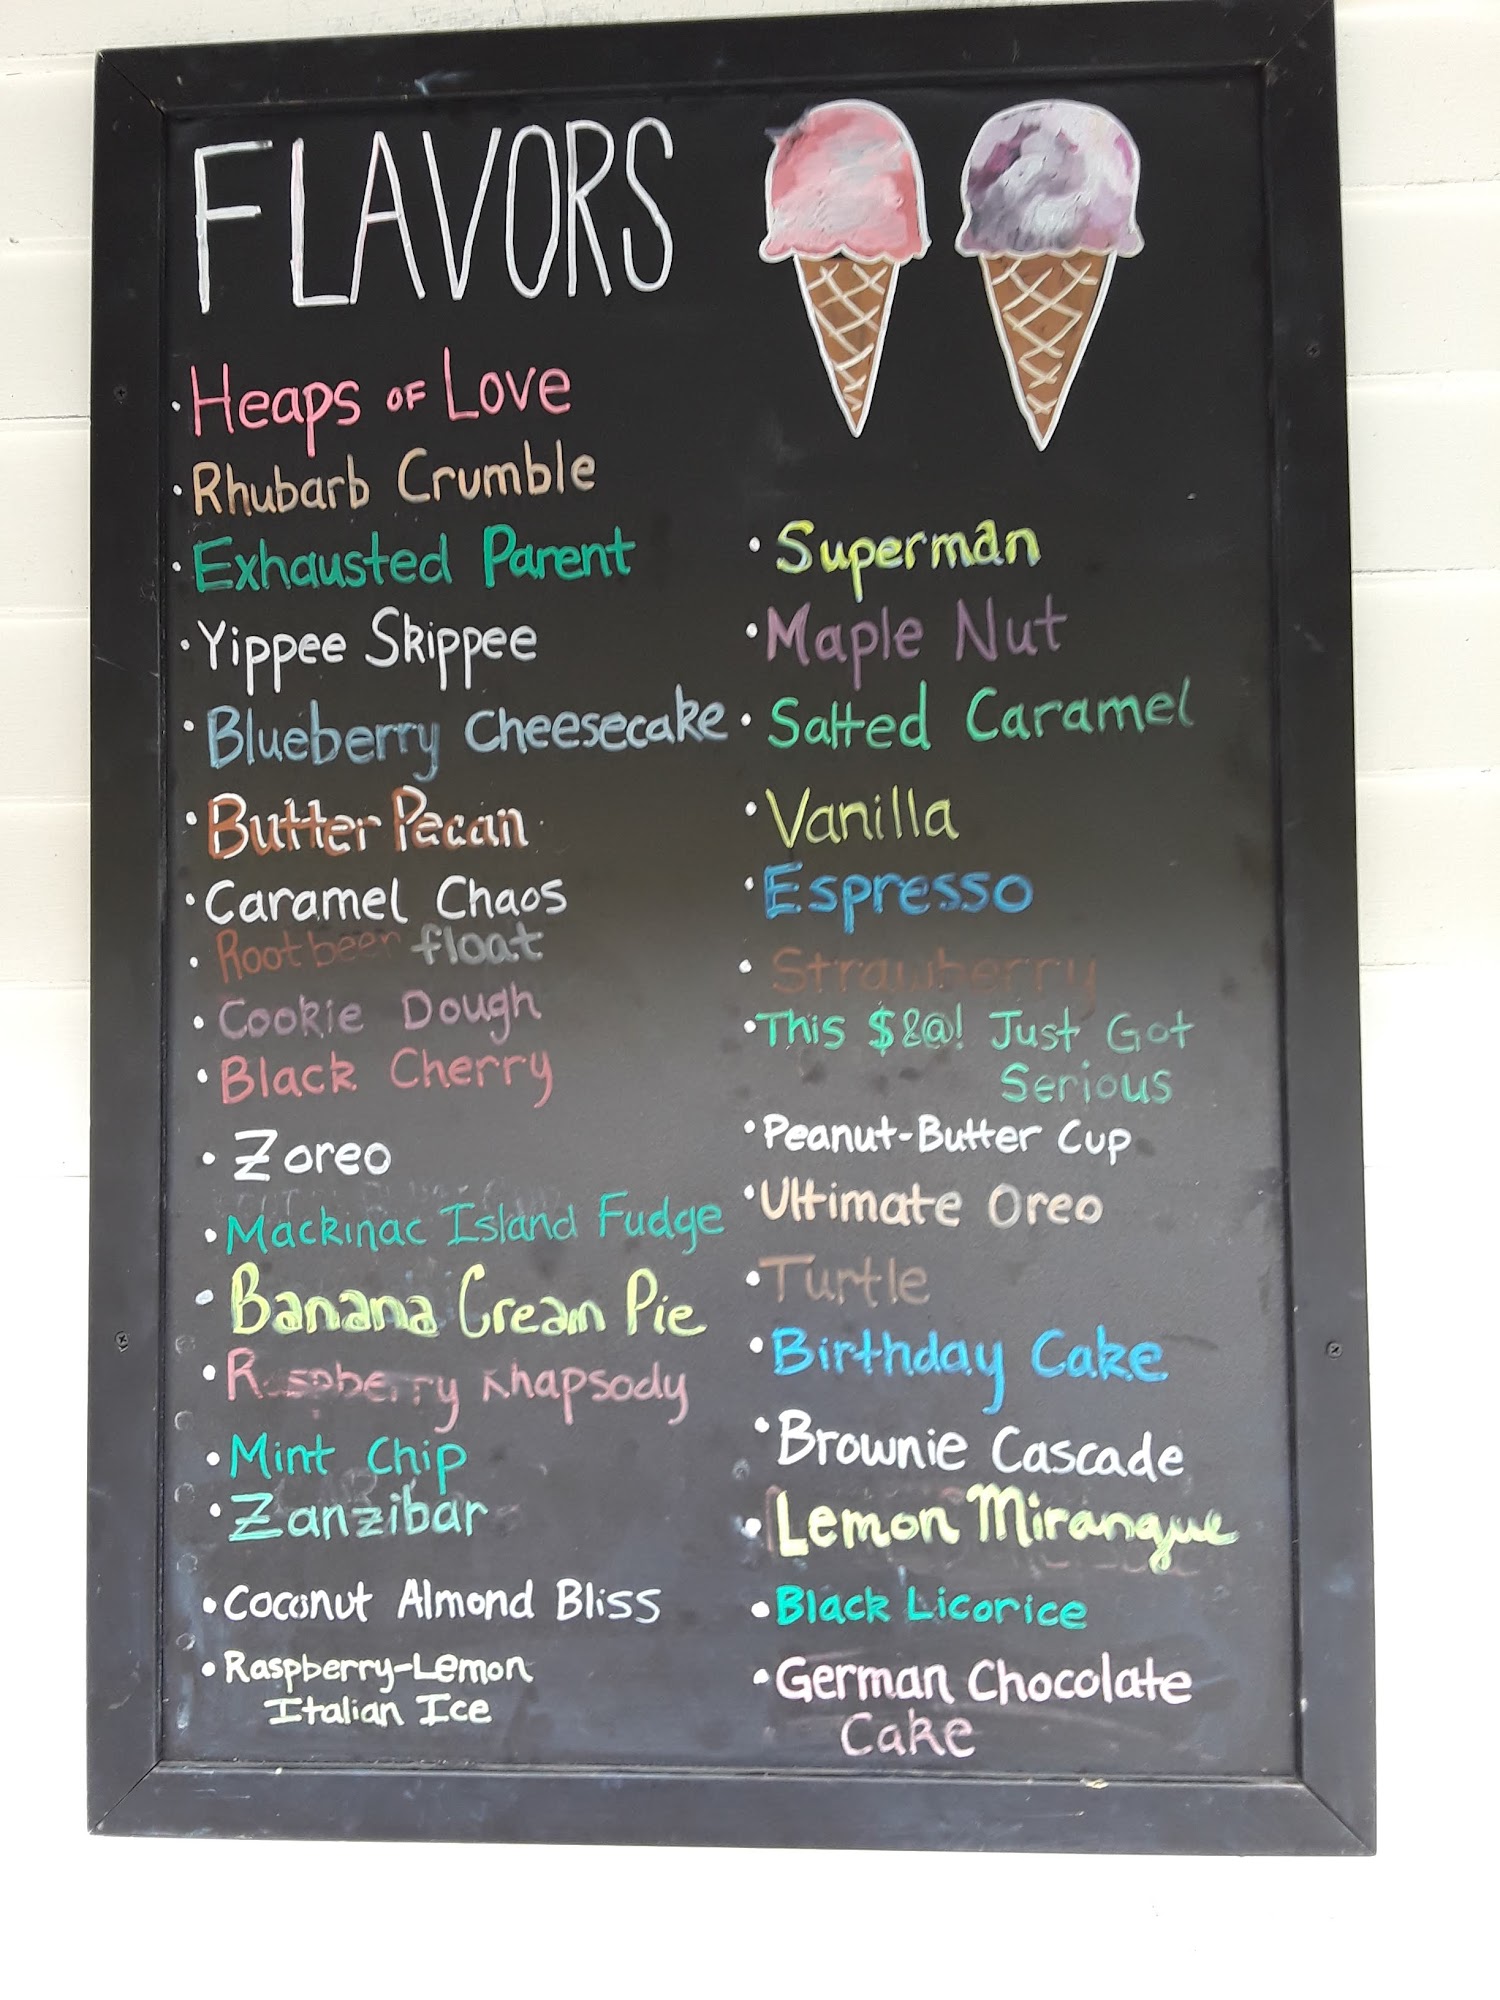 FLAVORS
• Heaps OF Love
• Rhubarb Crumble
• Exhausted Parent
• Yippee Skippee
• Blueberry Cheesecake
• Butter Pecan
• Caramel Chaos
• Rootbeer float
• Cookie Dough
• Black Cherry
• Zoreo
• Mackinac Island Fudge
• Banana Cream Pie
• Raspberry Rhapsody
• Mint Chip
• Zanzibar
• Coconut Almond Bliss
• Raspberry-Lemon
Italian Ice
• Superman
• Maple Nut
• Salted Caramel
• Vanilla
• Espresso
• Strawberry
• This $&@! Just Got
Serious
• Peanut-Butter Cup
• Ultimate Oreo
• Turtle
• Birthday Cake
• Brownie Cascade
• Lemon Mirangue
• Black Licorice
• German Chocolate
Cake